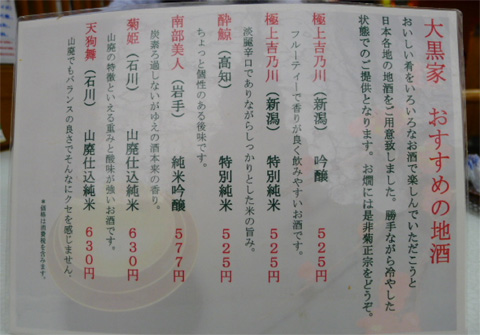 大黒家　おすすめの地酒
おいしい肴をいろいろなお酒で楽しんでいただこうと
日本各地の地酒をご用意致しました。勝手ながら冷やした
状態でのご提供となります。お燗には是非菊正宗をどうぞ。
極上吉乃川（新潟）　吟醸　５２５円
フルーティーで香りが良く飲みやすいお酒です。
極上吉乃川（新潟）　特別純米　５２５円
淡麗辛口でありながらしっかりとした米の旨み。
酔鯨（高知）　特別純米　５２５円
ちょっと個性のある後味です。
南部美人（岩手）　純米吟醸　５７７円
炭素ろ過しないがゆえの酒本来の香り。
菊姫（石川）　山廃仕込純米　６３０円
山廃の特徴といえる重みと酸味が強いお酒です。
天狗舞（石川）　山廃仕込純米　６３０円
山廃でもバランスの良さでそんなにクセを感じません。
＊価格は消費税を含みます。